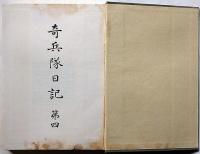 奇兵隊日記 第四